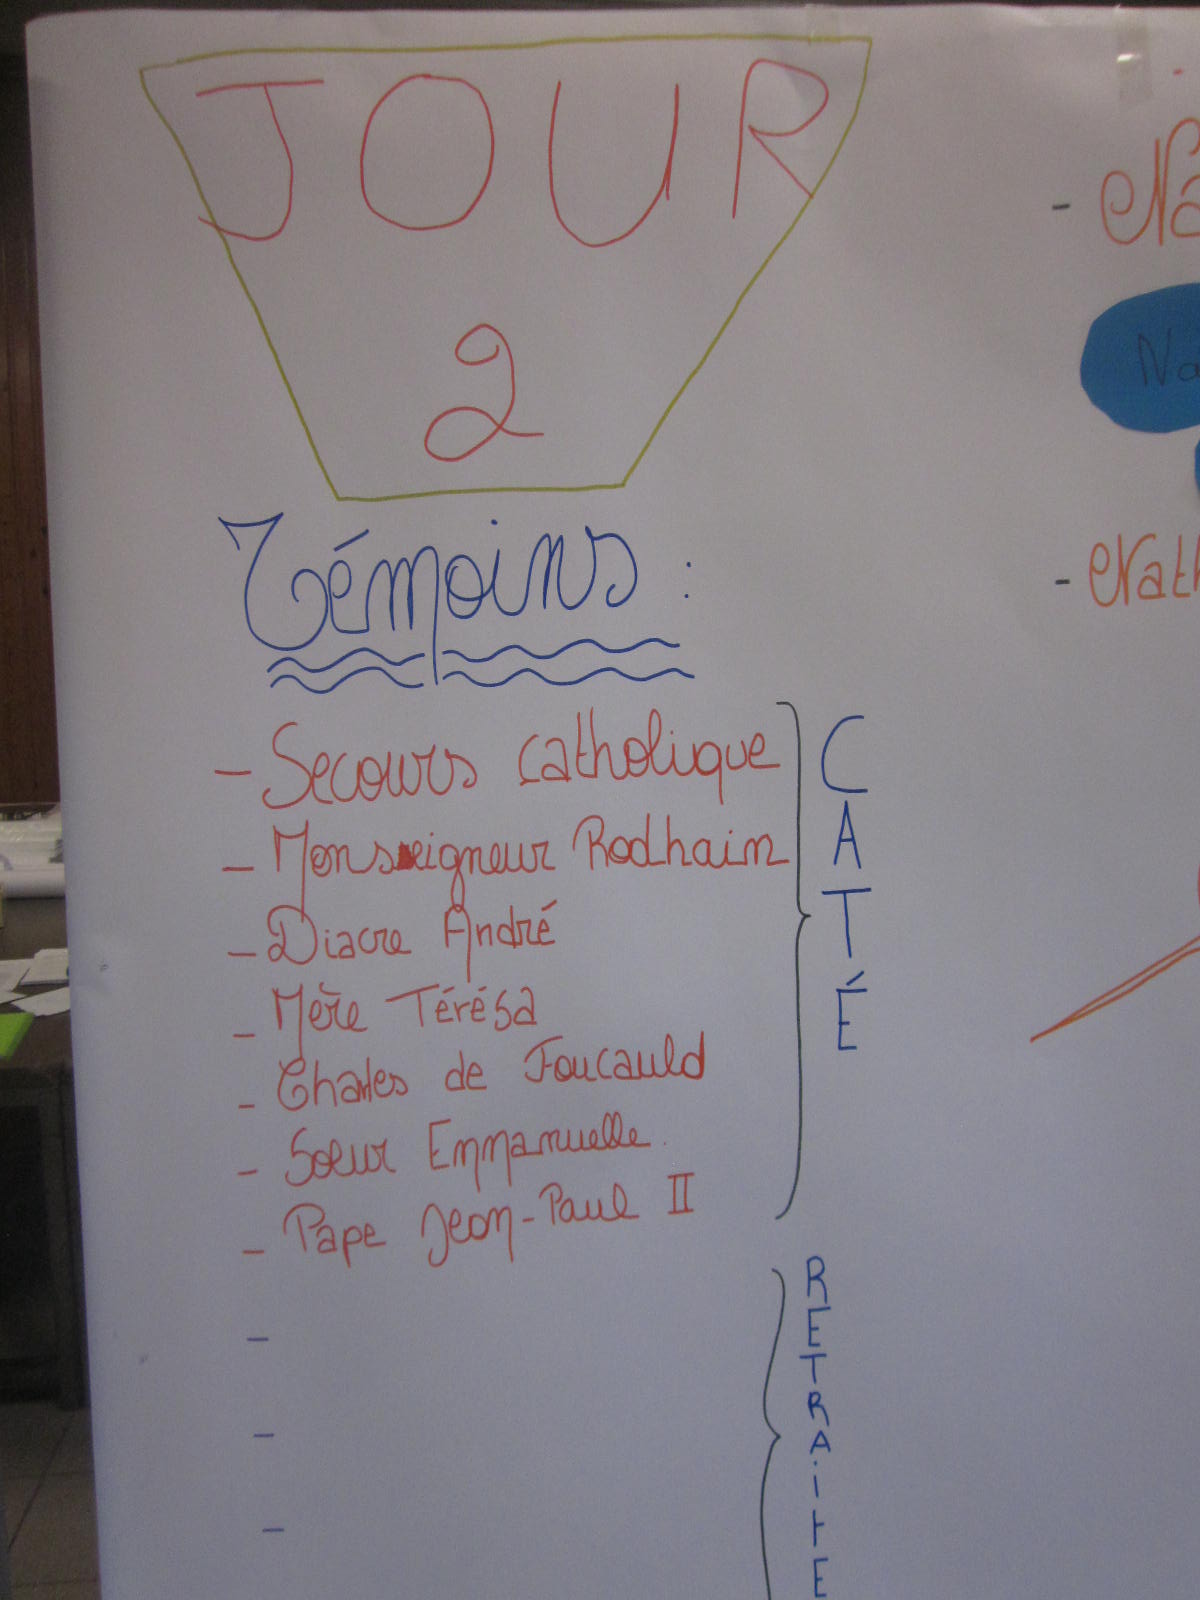 JOUR
2
Témoins :
- Secours catholique
- Monseigneur Rodhain
- Diacre André
- Mère Térésa
- Charles de Foucauld
- Soeur Emmanuelle.
- Pape Jean-Paul II
-
-
-
CATÉ
RETRAITE